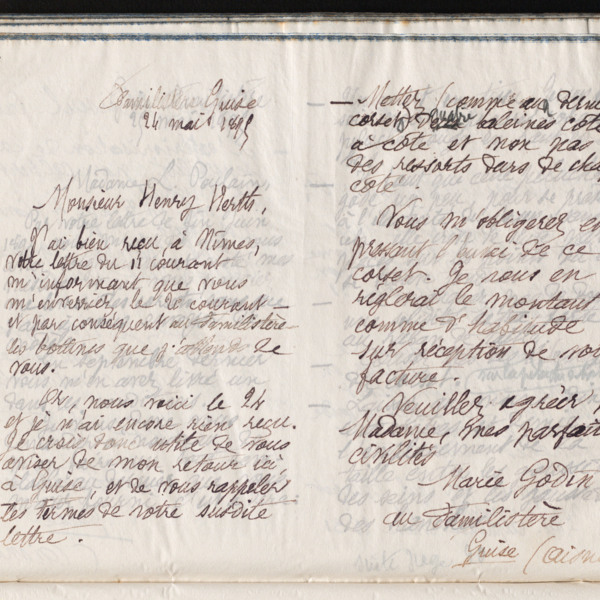 Familistère Guise
24 mai 1895
Monsieur Henry Herth,
J'ai bien reçu, à Nîmes,
votre lettre du 11 courant
m'informant que vous
m'enverriez le 20 courant
et par conséquent au Familistère
les bottines que j'attends de
vous.
Or, nous voici le 24
et je n'ai encore rien reçu.
Je crois donc utile de vous
aviser de mon retour ici,
à Guise, et de vous rappeler
les termes de votre susdite
lettre.
— Mettez (comme au
corset baleines côte
à côte et non pas
des ressorts durs de
côté.
Vous m'obligerez
pressant l'envoi de ce
corset. Je vous en
règlerai le montant
comme d'habitude
sur réception de
facture.
Veuillez agréer,
Madame, mes
civilités
Marie Godin
au Familistère
Guise